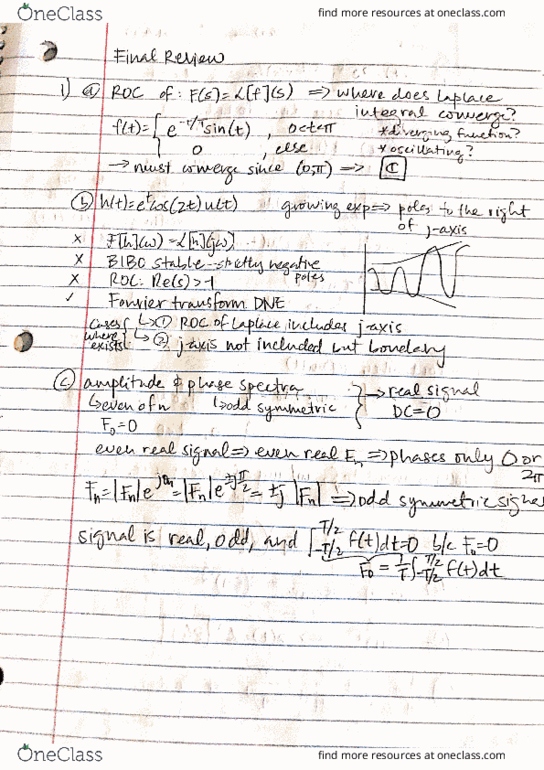 OneClass
find more resources at oneclass.com
Final Review
1) (a) ROC of: F(s)=L[f](s) => where does Laplace
integral converge?
f(t)= { e^-t/T sin(t) , 0<t<π *diverging function?
0 , else *oscillating?
→ must converge since (0,π) => ℂ
(b) h(t)=e^t cos(2t)u(t) growing exp => poles to the right
of j-axis
x F[h](ω) = L[h](jω)
x BIBO stable - strictly negative
poles
x ROC: Re(s)>-1
✓ Fourier transform DNE
cases where exists { ↳(1) ROC of Laplace includes j-axis
↳(2) j-axis not included but boundary
(c) amplitude & phase spectra } → real signal
↳even of n ↳odd symmetric DC=0
F₀=0
even real signal => even real Fn => phases only 0 or
2π
Fn=|Fn|e^jθn=|Fn|e^±jπ/2=±j|Fn| => odd symmetric
signal is real, odd, and ∫_-T/2^T/2 f(t)dt=0 b/c F₀=0
F₀ = 1/T ∫_-T/2^T/2 f(t)dt
OneClass
find more resources at oneclass.com